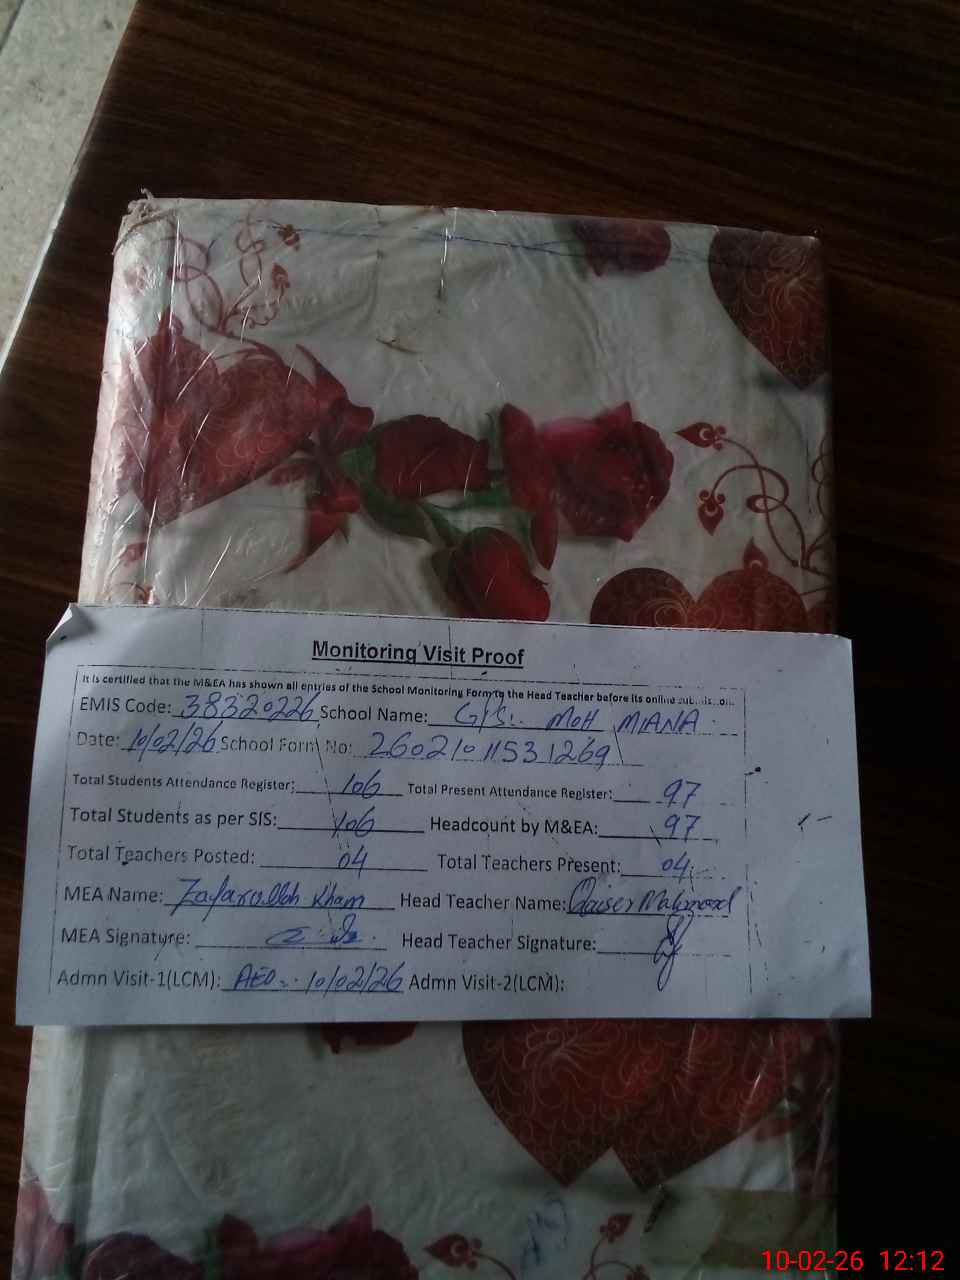 Monitoring Visit Proof
It is certified that the M&EA has shown all entries of the School Monitoring Form to the Head Teacher before its online submission.
EMIS Code: 38320226 School Name: G/S. MOH MIANA
Date: 10/02/26 School Form No: 26021011531269
Total Students Attendance Register: 106 Total Present Attendance Register: 97
Total Students as per SIS: 106 Headcount by M&EA: 97
Total Teachers Posted: 04 Total Teachers Present: 04
MEA Name: Zafarullah Khan Head Teacher Name: Qaiser Mahmood
MEA Signature: Head Teacher Signature:
Admn Visit-1(LCM): AEO. 10/02/26 Admn Visit-2(LCM):
10-02-26 12:12